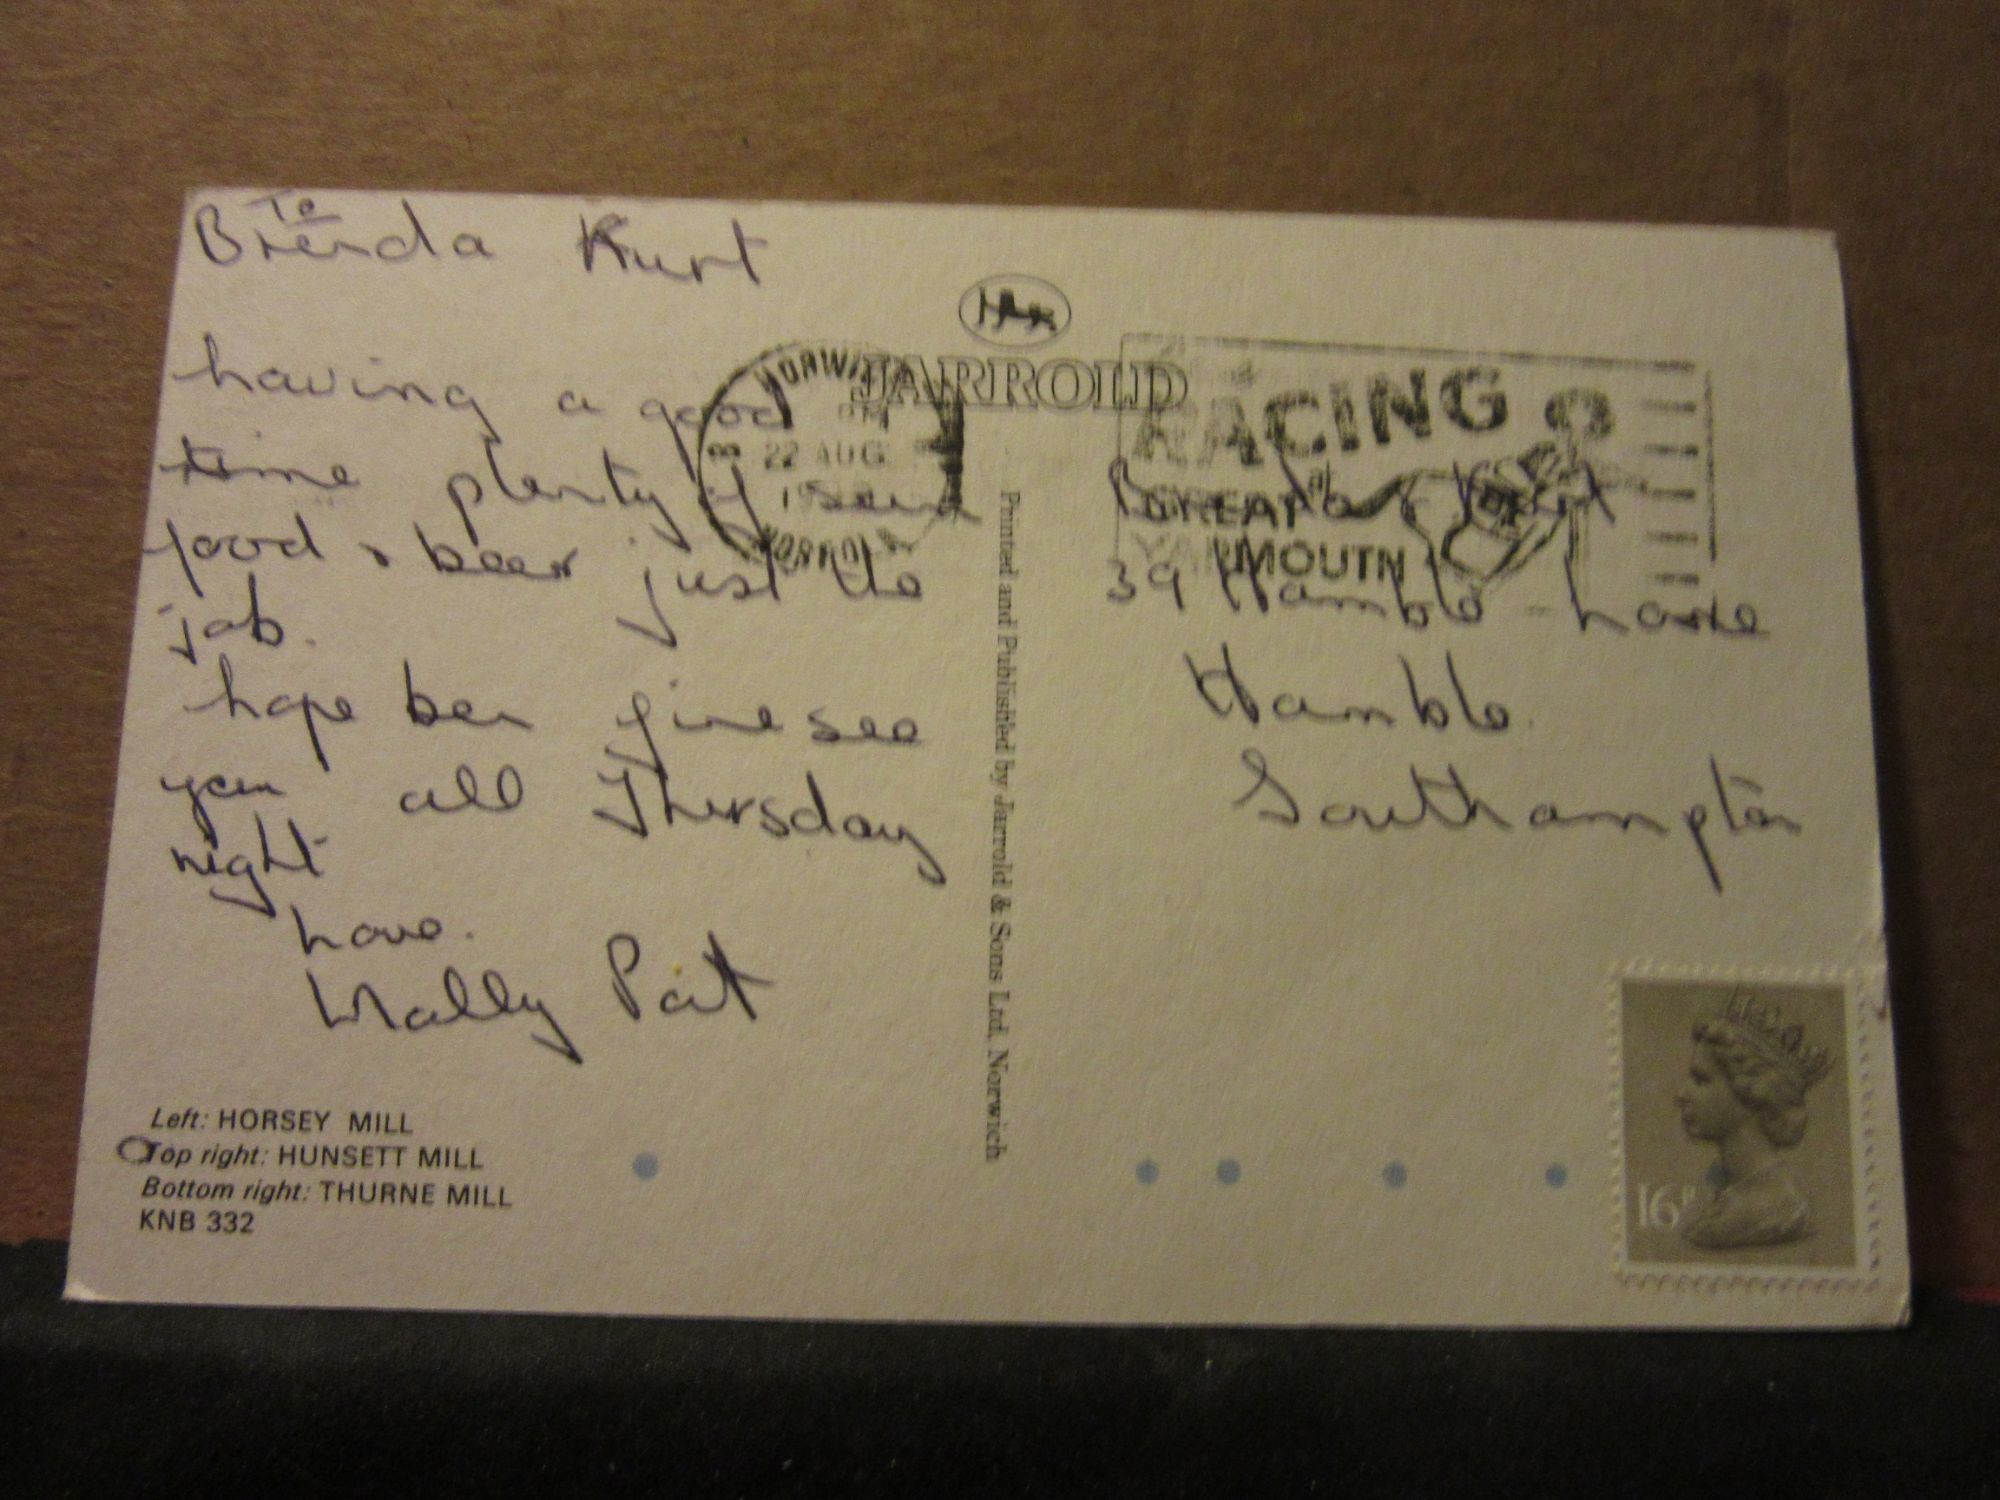 To
Brenda Kurt
having a good
time plenty of
food & beer just the
job.
hope ben fine see
you all Thersday
night
Love.
Wally Pat
Left: HORSEY MILL
Top right: HUNSETT MILL
Bottom right: THURNE MILL
KNB 332
JARROLD
Printed and Published by Jarrold & Sons Ltd, Norwich
NORWICH
PM
22 AUG
NORFOLK
RACING
at
GREAT
YARMOUTH
Brenda & Kurt
39 Hamble Lane
Hamble.
Southampton
16P